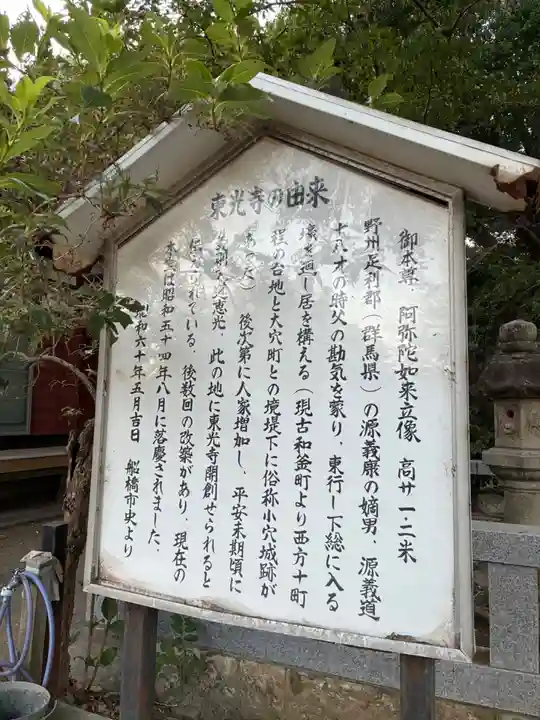 東光寺の由来
御本尊、阿弥陀如来立像 高サ一・二米
野州足利郡(群馬県)の源義康の嫡男、源義道
十八才の時父の勘気を蒙り、東行し下総に入る
壕を廻し居を構える(現古和釜町より西方十町
程の台地と大穴町との境堤下に俗称小穴城跡が
あった) 後次第に人家増加し、平安末期頃に
恵光、此の地に東光寺開創せられると
伝えられている。後数回の改築があり、現在の
本堂は昭和五十四年八月に落慶されました。
昭和六十年五月吉日 船橋市史より